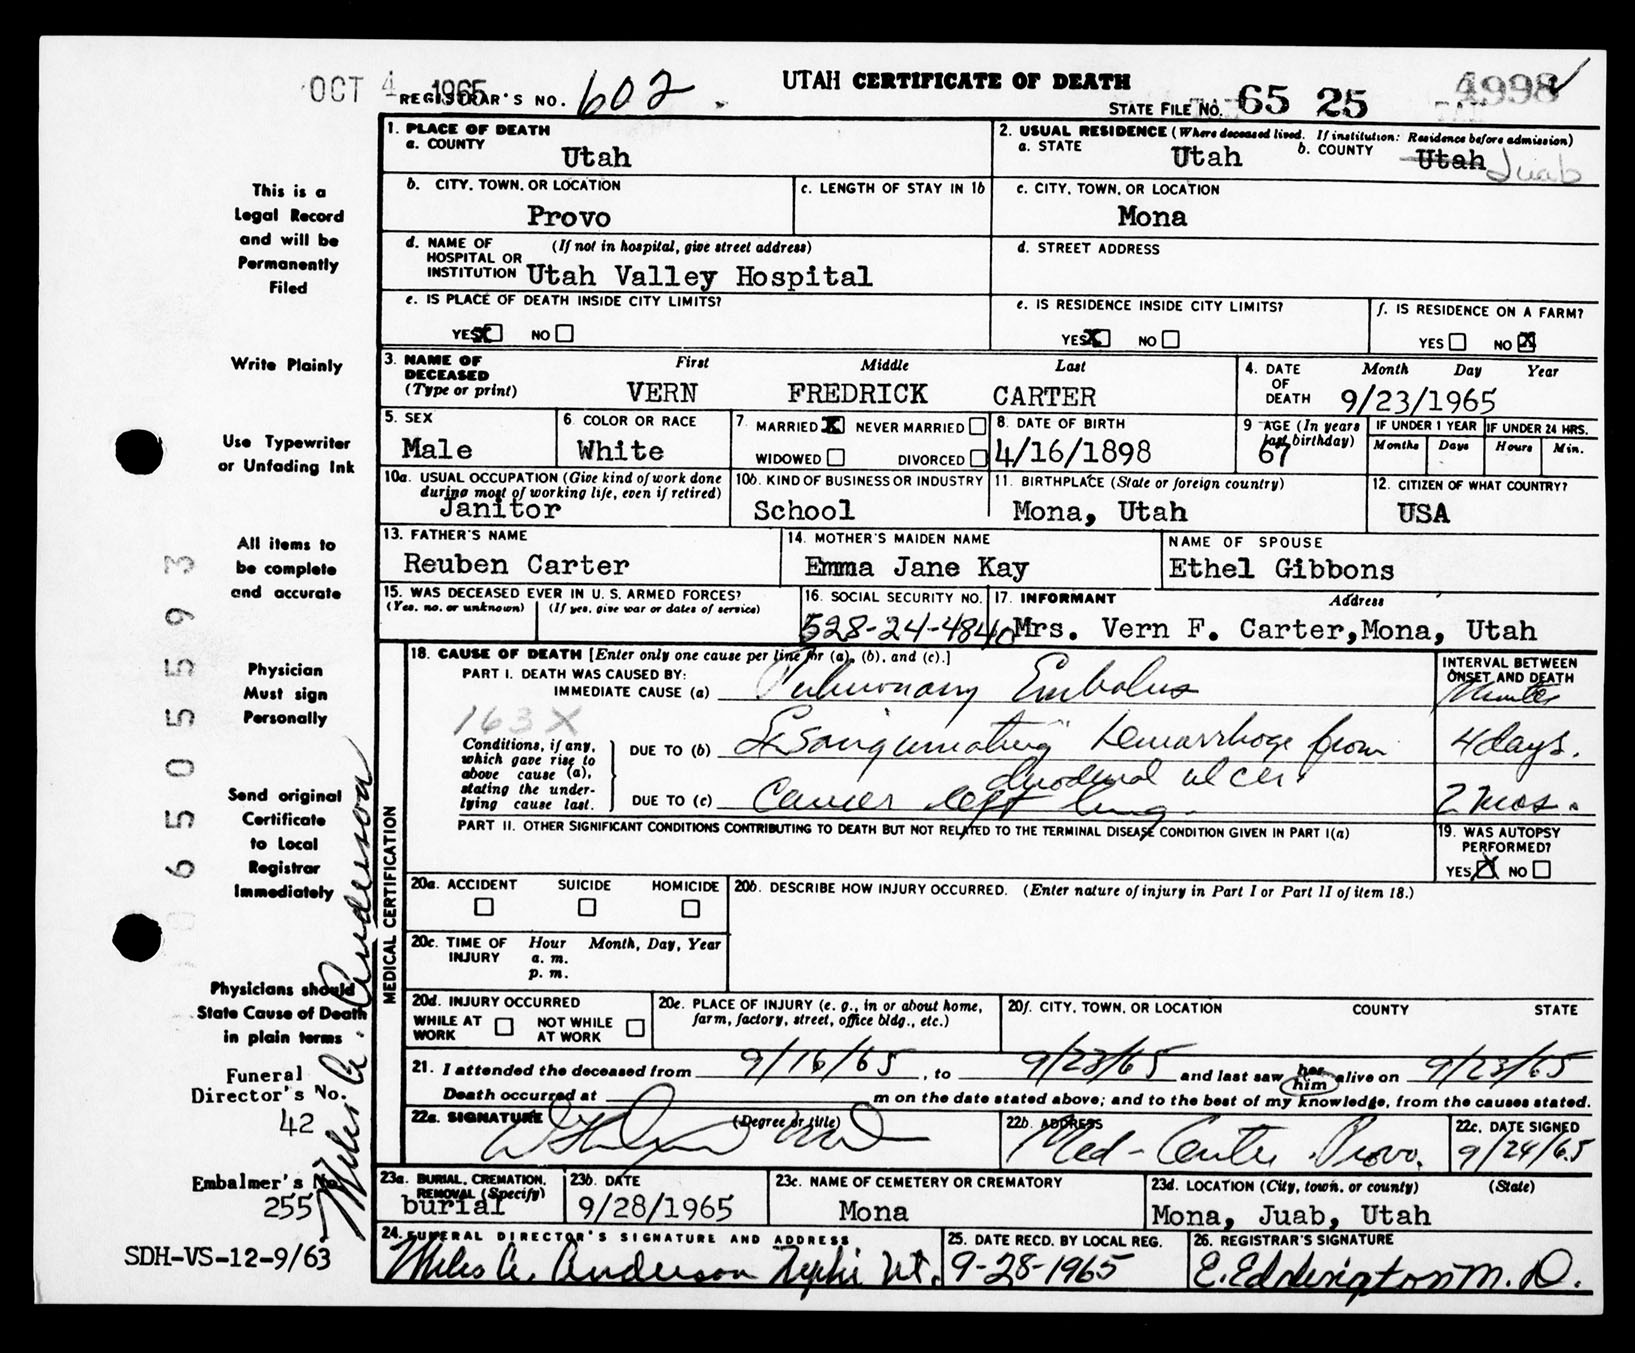 OCT 4 1965
REGISTRAR'S NO. 602
UTAH CERTIFICATE OF DEATH
STATE FILE NO. 65 25 4998
1. PLACE OF DEATH
a. COUNTY
Utah
2. USUAL RESIDENCE (Where deceased lived. If institution: Residence before admission)
a. STATE Utah b. COUNTY Utah Juab
b. CITY, TOWN, OR LOCATION
Provo
c. LENGTH OF STAY IN 1b
c. CITY, TOWN, OR LOCATION
Mona
d. NAME OF HOSPITAL OR INSTITUTION (If not in hospital, give street address)
Utah Valley Hospital
d. STREET ADDRESS
e. IS PLACE OF DEATH INSIDE CITY LIMITS?
YES X NO
e. IS RESIDENCE INSIDE CITY LIMITS?
YES X NO
f. IS RESIDENCE ON A FARM?
YES NO X
3. NAME OF DECEASED (Type or print)
First Middle Last
VERN FREDRICK CARTER
4. DATE OF DEATH Month Day Year
9/23/1965
5. SEX
Male
6 COLOR OR RACE
White
7. MARRIED X NEVER MARRIED
WIDOWED DIVORCED
8. DATE OF BIRTH
4/16/1898
9 AGE (In years last birthday)
67
IF UNDER 1 YEAR IF UNDER 24 HRS.
Months Days Hours Min.
10a. USUAL OCCUPATION (Give kind of work done during most of working life, even if retired)
Janitor
10b. KIND OF BUSINESS OR INDUSTRY
School
11. BIRTHPLACE (State or foreign country)
Mona, Utah
12. CITIZEN OF WHAT COUNTRY?
USA
13. FATHER'S NAME
Reuben Carter
14. MOTHER'S MAIDEN NAME
Emma Jane Kay
NAME OF SPOUSE
Ethel Gibbons
15. WAS DECEASED EVER IN U.S. ARMED FORCES?
(Yes, no, or unknown) (If yes, give war or dates of service)
16. SOCIAL SECURITY NO.
528-24-4840
17. INFORMANT Address
Mrs. Vern F. Carter, Mona, Utah
MEDICAL CERTIFICATION
18. CAUSE OF DEATH [Enter only one cause per line for (a), (b), and (c).]
PART I. DEATH WAS CAUSED BY:
IMMEDIATE CAUSE (a) Pulmonary Embolus
INTERVAL BETWEEN ONSET AND DEATH
163X
Conditions, if any, which gave rise to above cause (a), stating the underlying cause last.
DUE TO (b) Exsanguinating hemorrhage from duodenal ulcer 4 days.
DUE TO (c) Cancer left lung. 2 mos.
PART II. OTHER SIGNIFICANT CONDITIONS CONTRIBUTING TO DEATH BUT NOT RELATED TO THE TERMINAL DISEASE CONDITION GIVEN IN PART I(a)
19. WAS AUTOPSY PERFORMED?
YES X NO
20a. ACCIDENT SUICIDE HOMICIDE
20b. DESCRIBE HOW INJURY OCCURRED. (Enter nature of injury in Part I or Part II of item 18.)
20c. TIME OF INJURY Hour Month, Day, Year
a. m.
p. m.
20d. INJURY OCCURRED
WHILE AT WORK NOT WHILE AT WORK
20e. PLACE OF INJURY (e. g., in or about home, farm, factory, street, office bldg., etc.)
20f. CITY, TOWN, OR LOCATION COUNTY STATE
21. I attended the deceased from 9/16/65, to 9/23/65 and last saw her him alive on 9/23/65
Death occurred at m on the date stated above; and to the best of my knowledge, from the causes stated.
22a. SIGNATURE (Degree or title)
22b. ADDRESS
Med-Center Provo.
22c. DATE SIGNED
9/24/65
23a. BURIAL, CREMATION, REMOVAL (Specify)
burial
23b. DATE
9/28/1965
23c. NAME OF CEMETERY OR CREMATORY
Mona
23d. LOCATION (City, town, or county) (State)
Mona, Juab, Utah
24. FUNERAL DIRECTOR'S SIGNATURE AND ADDRESS
Miles A. Anderson Nephi Ut.
25. DATE RECD. BY LOCAL REG.
9-28-1965
26. REGISTRAR'S SIGNATURE
E. Eddington M. D.
This is a
Legal Record
and will be
Permanently
Filed
Write Plainly
Use Typewriter
or Unfading Ink
All items to
be complete
and accurate
Physician
Must sign
Personally
Send original
Certificate
to Local
Registrar
Immediately
Physicians should
State Cause of Death
in plain terms
Funeral
Director's No.
42
Embalmer's No.
255
SDH-VS-12-9/63
Miles A. Anderson
6505593